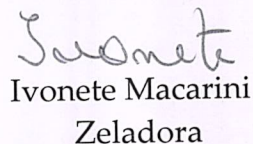 Ivonete
Ivonete Macarini
Zeladora